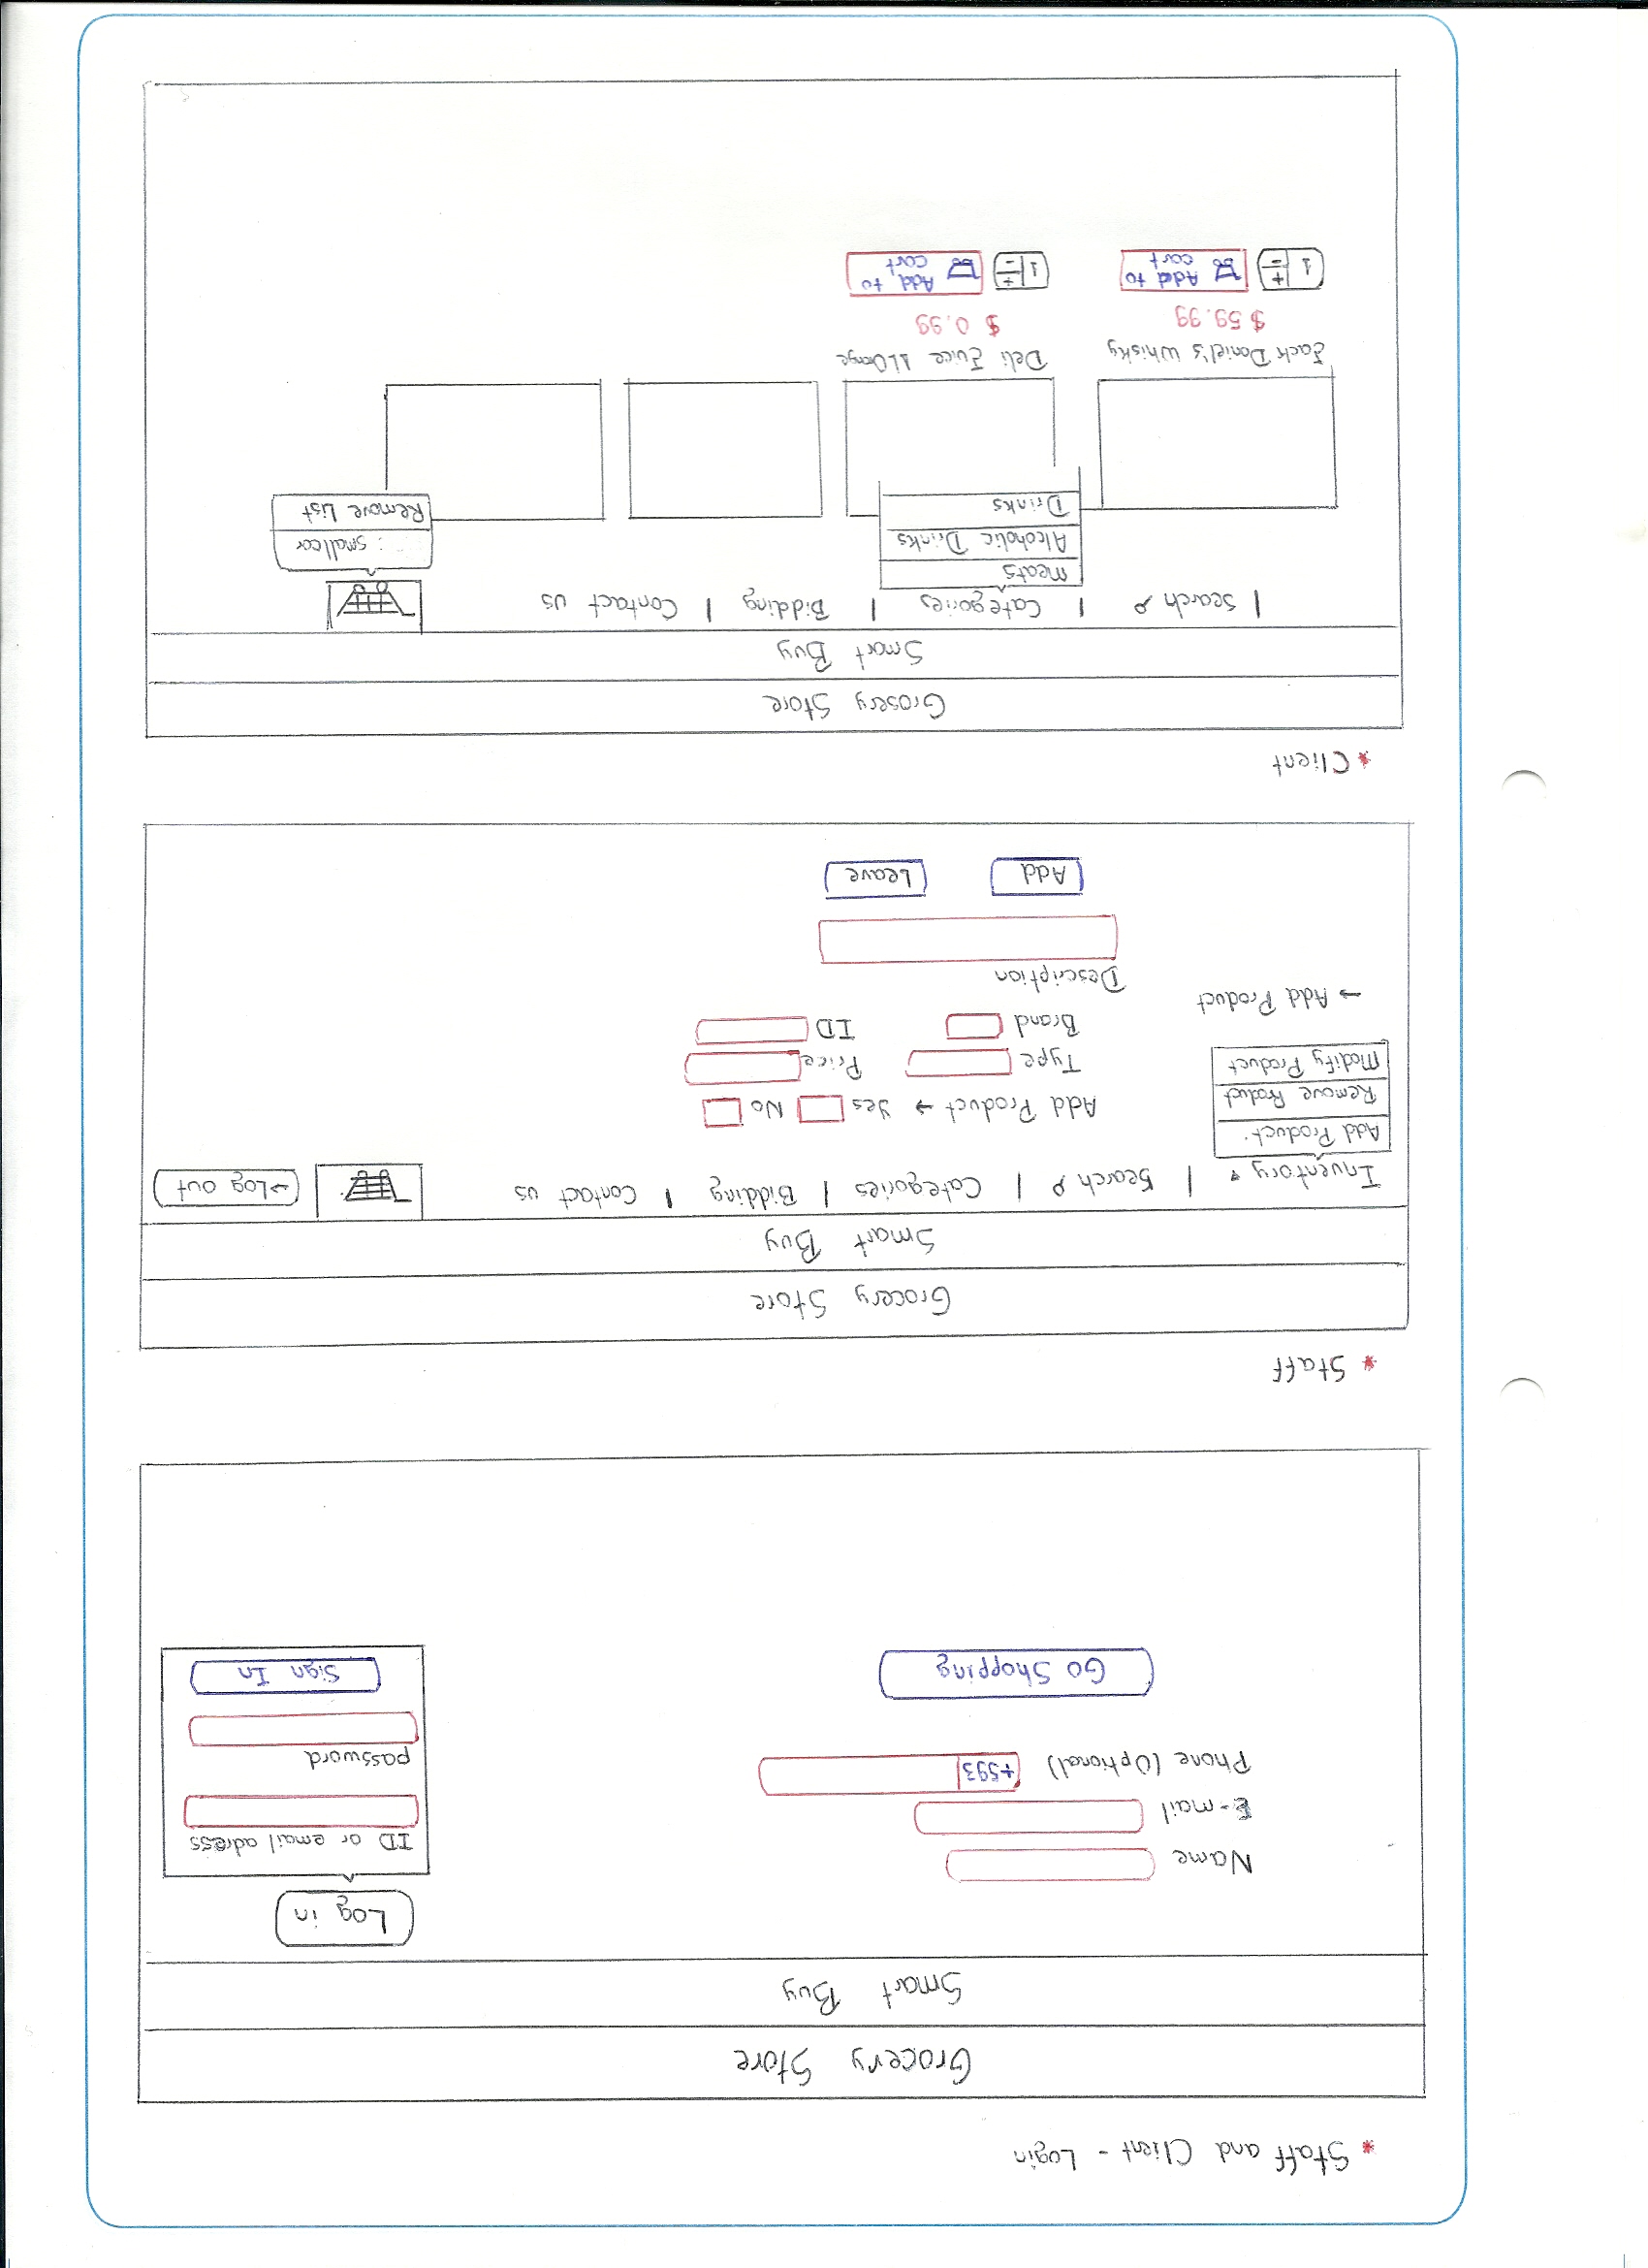 * Staff and Client - Login
Grocery Store
Smart Buy
Log in
Name
ID or email adress
E-mail
Phone (Optional) +593
password
Go Shopping
Sign In
* Staff
Grocery Store
Smart Buy
Inventory | Search | Categories | Bidding | Contact us
→Log out
Add Product
Remove Product
Modify Product
Add Product → Yes No
Type Price
Brand ID
→ Add Product
Description
Add Leave
* Client
Grosery Store
Smart Buy
| Search | Categories | Bidding | Contact us
Meats
Alcoholic Drinks
Drinks
: smallcar
Remove List
Jack Daniel's Whisky
$ 59.99
1 + - Add to cart
Deli Juice 1L Orange
$ 0.99
1 + - Add to cart